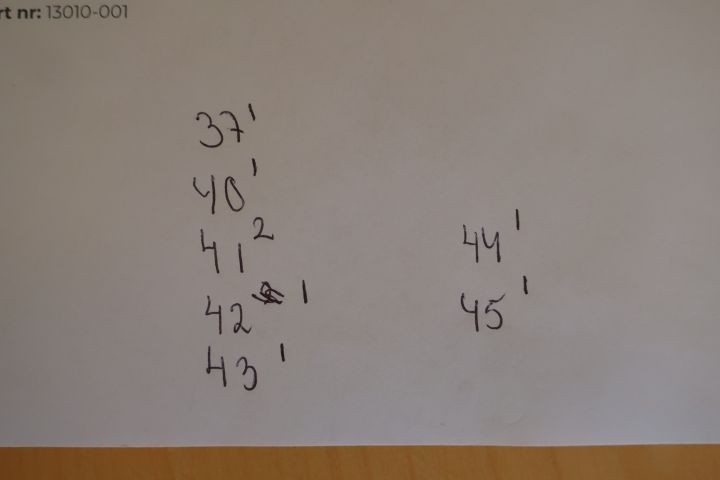 rt nr: 13010-001
37¹
40¹
41²
42 ¹
43¹
44¹
45¹